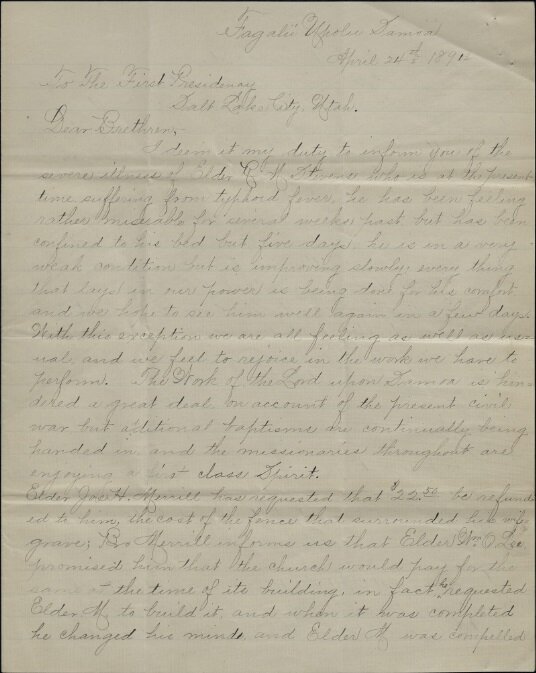 Fagalii Upolu Samoa
April 24th 1894
To The First Presidency
Salt Lake City, Utah.
Dear Brethren,-
I deem it my duty to inform you of the
severe illness of Elder who is at the present
time suffering from typhoid fever, he has been feeling
rather miserable for several weeks past, but has been
confined to his bed but five days, he is in a very
weak condition but is improving slowly; every thing
that lays in our power is being done for his comfort
and we hope to see him well again in a few days.
With this exception we are all feeling as well as us-
ual, and we feel to rejoice in the work we have to
perform. The Work of the Lord upon Samoa is hin-
dered a great deal on account of the present civil
war but additional baptisms are continually being
handed in, and the missionaries throughout are
enjoying a first class Spirit.
Elder Jos. H. Merrill has requested that $22.50 be refund-
ed to him, the cost of the fence that surrounded his wife's
grave; Bro Merrill informs us that Elder Wm O. Lee
promised him that the church would pay for the
same at the time of its building, in fact he requested
Elder M to build it, and when it was completed
he changed his mind, and Elder M was compelled